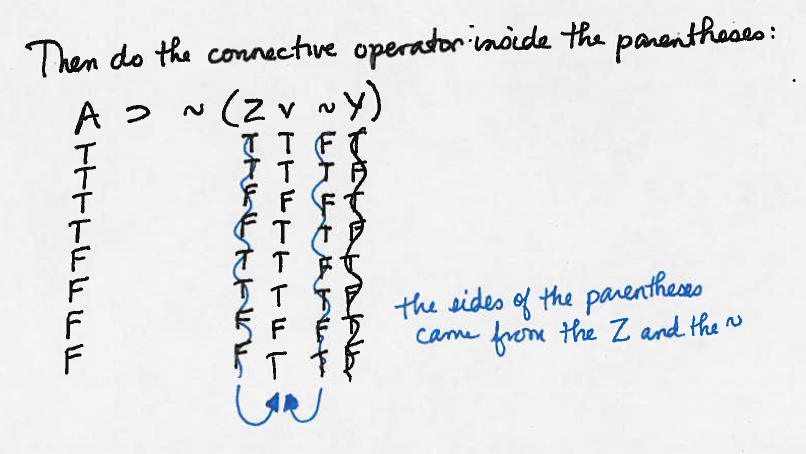 Then do the connective operator inside the parentheses:
A ⊃ ~ (Z v ~ Y)
T T T F T
T T T T F
T F F F T
T F T T F
F T T F T
F T T T F
F F F F T
F F T T F
the sides of the parentheses
came from the Z and the ~